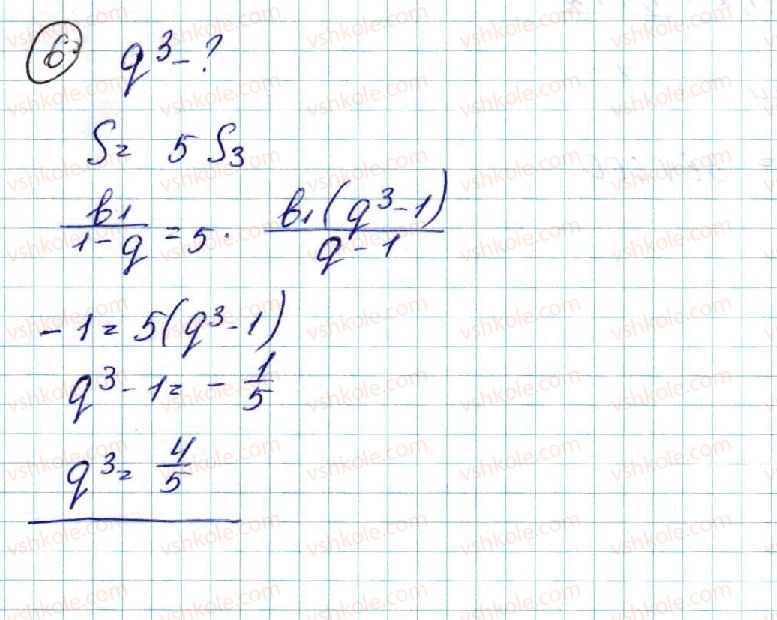 6) q³ - ?
S = 5 S₃
b₁/(1-q) = 5 · b₁(q³-1)/(q-1)
-1 = 5(q³-1)
q³-1 = -1/5
q³ = 4/5
vshkole.com